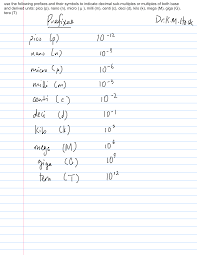 use the following prefixes and their symbols to indicate decimal sub-multiples or multiples of both base
and derived units: pico (p), nano (n), micro (μ), milli (m), centi (c), deci (d), kilo (k), mega (M), giga (G),
tera (T)
Prefixes
pico (p) 10⁻¹²
nano (n) 10⁻⁹
micro (μ) 10⁻⁶
milli (m) 10⁻³
centi (c) 10⁻²
deci (d) 10⁻¹
kilo (k) 10³
mega (M) 10⁶
giga (G) 10⁹
tera (T) 10¹²